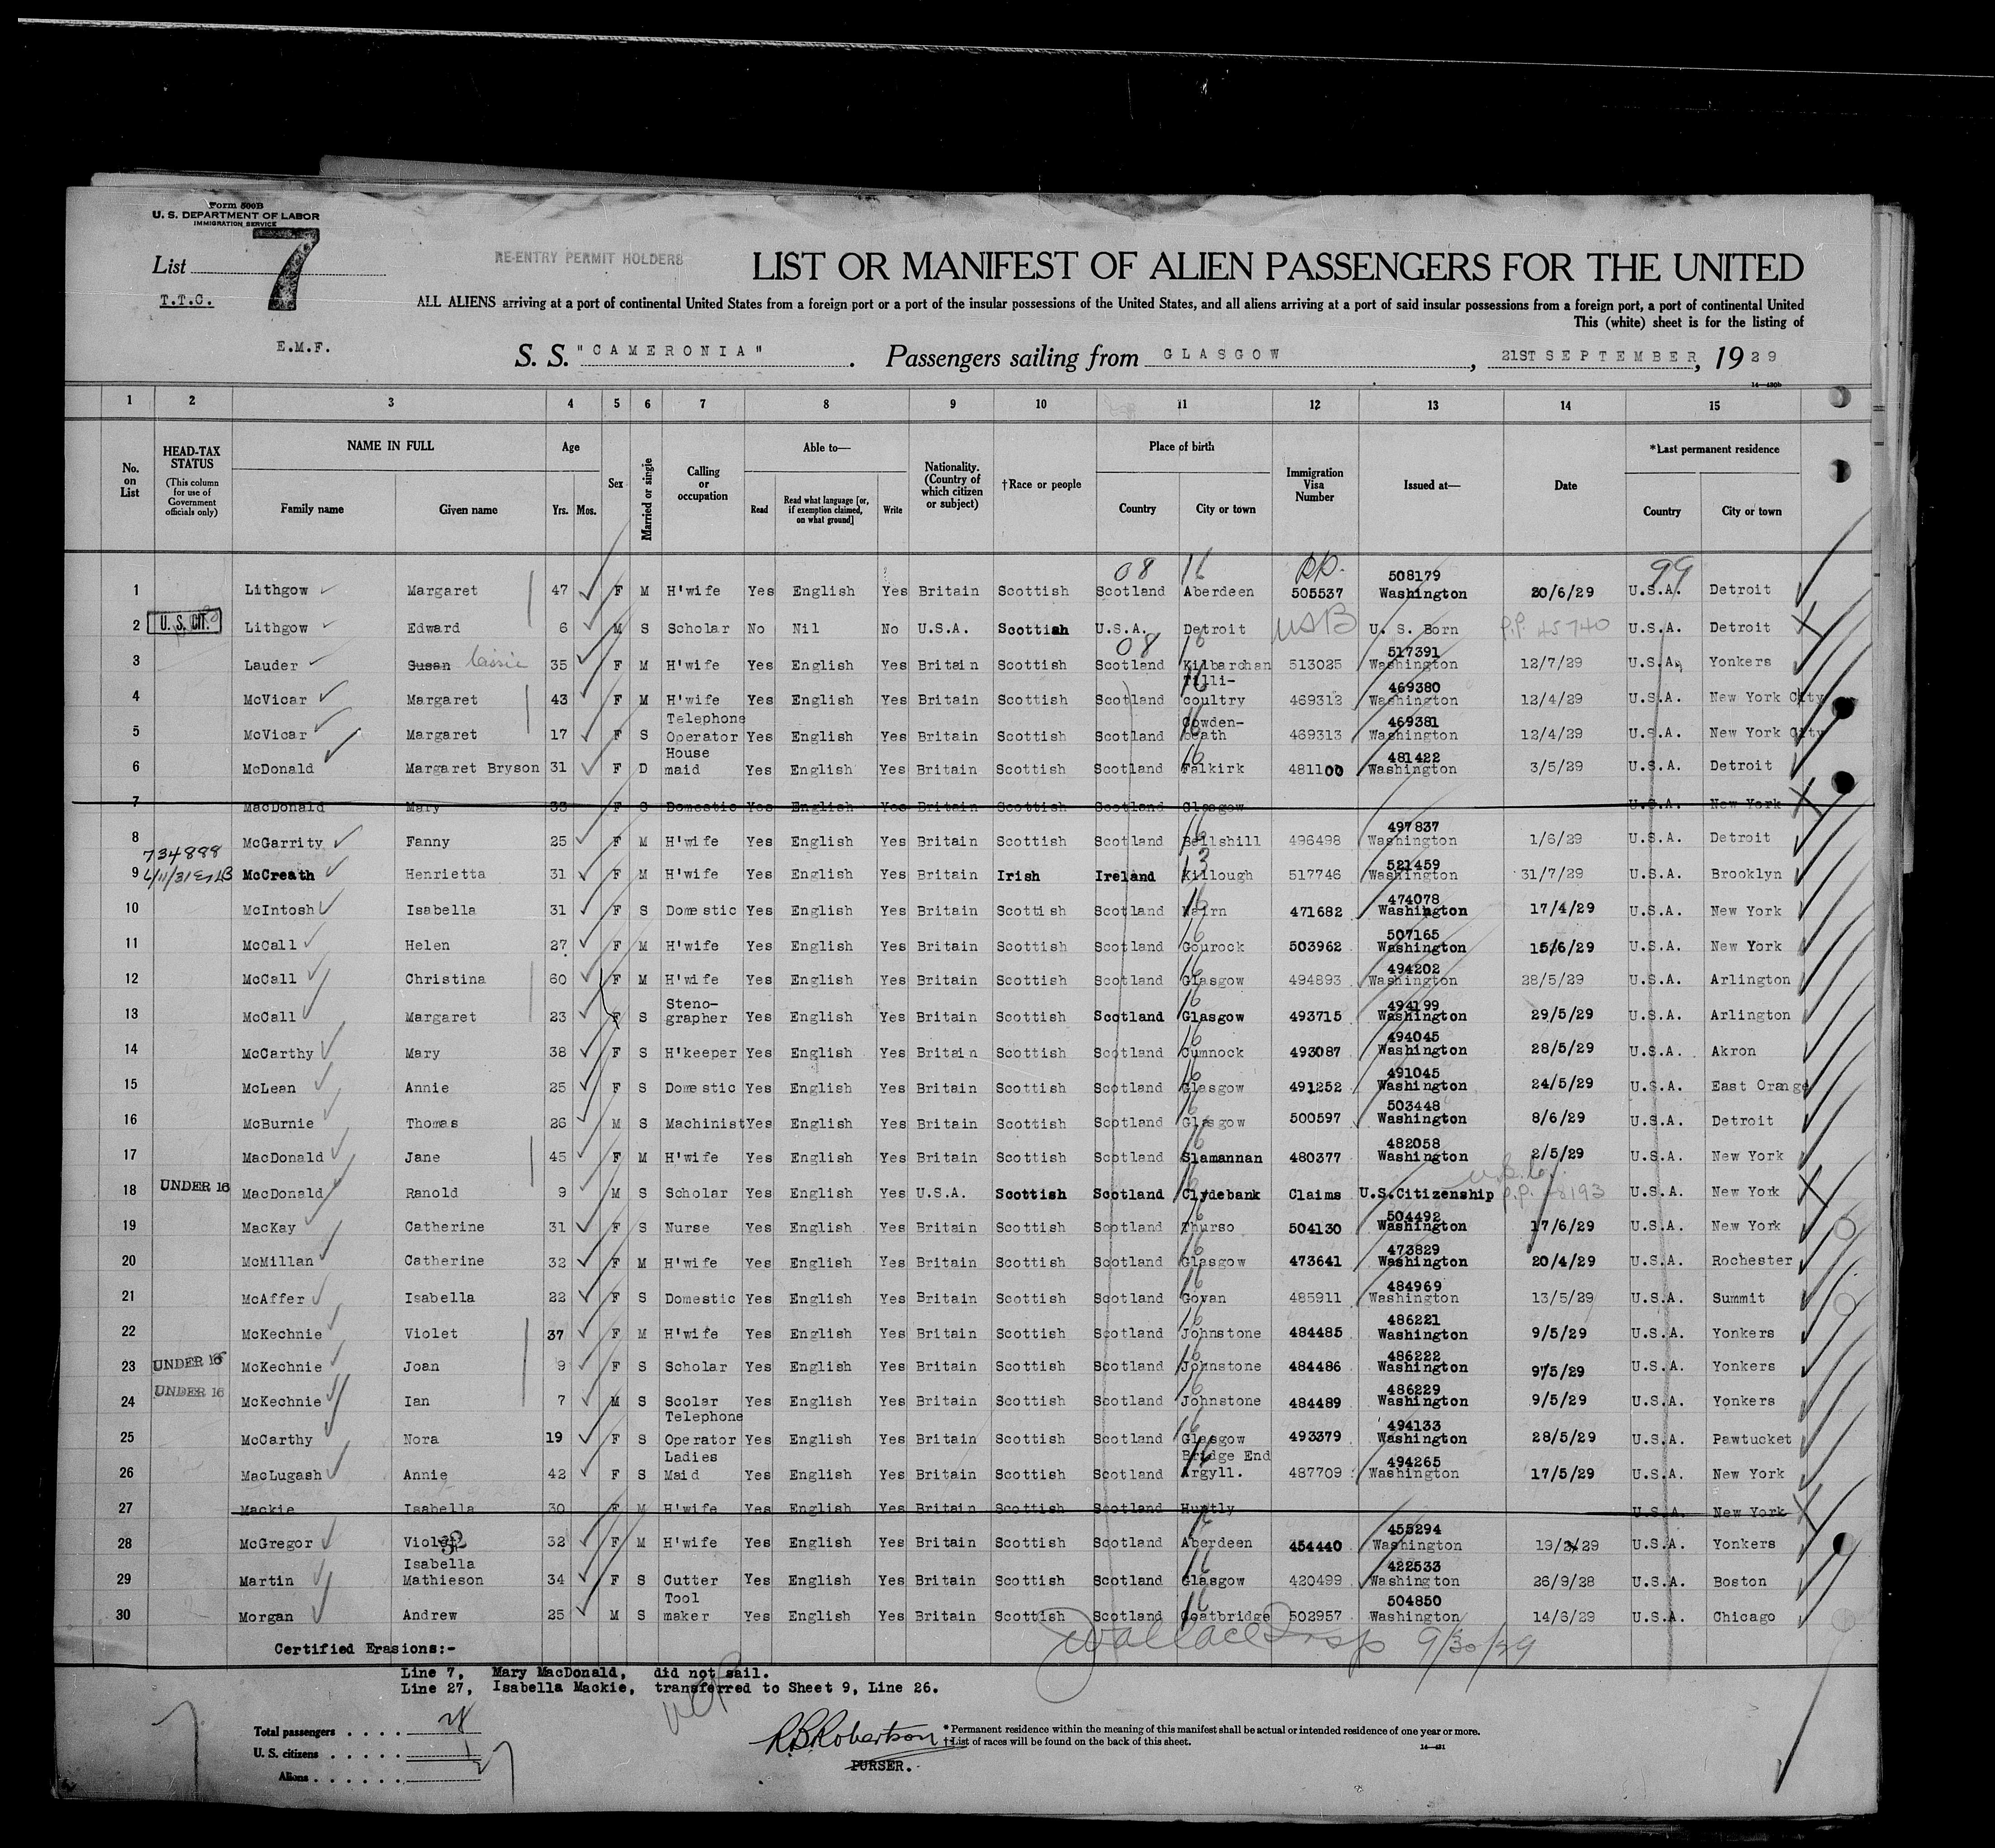 Form 500B
U. S. DEPARTMENT OF LABOR
IMMIGRATION SERVICE
List 7
T.T.C.
E.M.F.
RE-ENTRY PERMIT HOLDERS
LIST OR MANIFEST OF ALIEN PASSENGERS FOR THE UNITED
ALL ALIENS arriving at a port of continental United States from a foreign port or a port of the insular possessions of the United States, and all aliens arriving at a port of said insular possessions from a foreign port, a port of continental United
This (white) sheet is for the listing of
S. S. "CAMERONIA". Passengers sailing from GLASGOW, 21ST SEPTEMBER, 1929
1 2 3 4 5 6 7 8 9 10 11 12 13 14 15
No. on List
HEAD-TAX STATUS (This column for use of Government officials only)
NAME IN FULL Family name Given name
Age Yrs. Mos.
Sex
Married or single
Calling or occupation
Able to— Read Read what language [or, if exemption claimed, on what ground] Write
Nationality. (Country of which citizen or subject)
†Race or people
Place of birth Country City or town
Immigration Visa Number
Issued at—
Date
*Last permanent residence Country City or town
08 16 99
1 Lithgow Margaret 47 F M H'wife Yes English Yes Britain Scottish Scotland Aberdeen 505537 508179 Washington 20/6/29 U.S.A. Detroit
2 U. S. CIT. Lithgow Edward 6 M S Scholar No Nil No U.S.A. Scottish U.S.A. Detroit USB U. S. Born P.P. 45740 U.S.A. Detroit
08 16
3 Lauder Susan Cissie 35 F M H'wife Yes English Yes Britain Scottish Scotland Kilbarchan 513025 517391 Washington 12/7/29 U.S.A. Yonkers
4 McVicar Margaret 43 F M H'wife Yes English Yes Britain Scottish Scotland Tilli-coultry 469312 469380 Washington 12/4/29 U.S.A. New York City
5 McVicar Margaret 17 F S Telephone Operator Yes English Yes Britain Scottish Scotland Cowden-beath 469313 469381 Washington 12/4/29 U.S.A. New York City
6 McDonald Margaret Bryson 31 F D House maid Yes English Yes Britain Scottish Scotland Falkirk 481100 481422 Washington 3/5/29 U.S.A. Detroit
7 MacDonald Mary 33 F S Domestic Yes English Yes Britain Scottish Scotland Glasgow U.S.A. New York
8 McGarrity Fanny 25 F M H'wife Yes English Yes Britain Scottish Scotland Bellshill 496498 497837 Washington 1/6/29 U.S.A. Detroit
734888
9 McCreath Henrietta 31 F M H'wife Yes English Yes Britain Irish Ireland Killough 517746 521459 Washington 31/7/29 U.S.A. Brooklyn
10 McIntosh Isabella 31 F S Domestic Yes English Yes Britain Scottish Scotland Nairn 471682 474078 Washington 17/4/29 U.S.A. New York
11 McCall Helen 27 F M H'wife Yes English Yes Britain Scottish Scotland Gourock 503962 507165 Washington 15/6/29 U.S.A. New York
12 McCall Christina 60 F M H'wife Yes English Yes Britain Scottish Scotland Glasgow 494893 494202 Washington 28/5/29 U.S.A. Arlington
13 McCall Margaret 23 F S Steno-grapher Yes English Yes Britain Scottish Scotland Glasgow 493715 494199 Washington 29/5/29 U.S.A. Arlington
14 McCarthy Mary 38 F S H'keeper Yes English Yes Britain Scottish Scotland Cumnock 493087 494045 Washington 28/5/29 U.S.A. Akron
15 McLean Annie 25 F S Domestic Yes English Yes Britain Scottish Scotland Glasgow 491252 491045 Washington 24/5/29 U.S.A. East Orange
16 McBurnie Thomas 26 M S Machinist Yes English Yes Britain Scottish Scotland Glasgow 500597 503448 Washington 8/6/29 U.S.A. Detroit
17 MacDonald Jane 45 F M H'wife Yes English Yes Britain Scottish Scotland Slamannan 480377 482058 Washington 2/5/29 U.S.A. New York
18 UNDER 16 MacDonald Ranold 9 M S Scholar Yes English Yes U.S.A. Scottish Scotland Clydebank Claims U.S.Citizenship U.S.A. New York
19 MacKay Catherine 31 F S Nurse Yes English Yes Britain Scottish Scotland Thurso 504130 504492 Washington 17/6/29 U.S.A. New York
20 McMillan Catherine 32 F M H'wife Yes English Yes Britain Scottish Scotland Glasgow 473641 473829 Washington 20/4/29 U.S.A. Rochester
21 McAffer Isabella 22 F S Domestic Yes English Yes Britain Scottish Scotland Govan 485911 484969 Washington 13/5/29 U.S.A. Summit
22 McKechnie Violet 37 F M H'wife Yes English Yes Britain Scottish Scotland Johnstone 484485 486221 Washington 9/5/29 U.S.A. Yonkers
23 UNDER 16 McKechnie Joan 9 F S Scholar Yes English Yes Britain Scottish Scotland Johnstone 484486 486222 Washington 9/5/29 U.S.A. Yonkers
24 UNDER 16 McKechnie Ian 7 M S Scolar Yes English Yes Britain Scottish Scotland Johnstone 484489 486229 Washington 9/5/29 U.S.A. Yonkers
25 McCarthy Nora 19 F S Telephone Operator Yes English Yes Britain Scottish Scotland Glasgow 493379 494133 Washington 28/5/29 U.S.A. Pawtucket
26 MacLugash Annie 42 F S Ladies Maid Yes English Yes Britain Scottish Scotland Bridge End Argyll. 487709 494265 Washington 17/5/29 U.S.A. New York
27 Mackie Isabella 30 F M H'wife Yes English Yes Britain Scottish Scotland Huntly U.S.A. New York
28 McGregor Violet 32 F M H'wife Yes English Yes Britain Scottish Scotland Aberdeen 454440 455294 Washington 19/2/29 U.S.A. Yonkers
29 Martin Isabella Mathieson 34 F S Cutter Yes English Yes Britain Scottish Scotland Glasgow 420499 422533 Washington 26/9/28 U.S.A. Boston
30 Morgan Andrew 25 M S Tool maker Yes English Yes Britain Scottish Scotland Coatbridge 502957 504850 Washington 14/6/29 U.S.A. Chicago
Wallace Insp 9/30/29
Certified Erasions:-
Line 7, Mary MacDonald, did not sail.
Line 27, Isabella Mackie, transferred to Sheet 9, Line 26.
Total passengers
U. S. citizens
Aliens
R.B.Robertson
PURSER.
* Permanent residence within the meaning of this manifest shall be actual or intended residence of one year or more.
† List of races will be found on the back of this sheet.